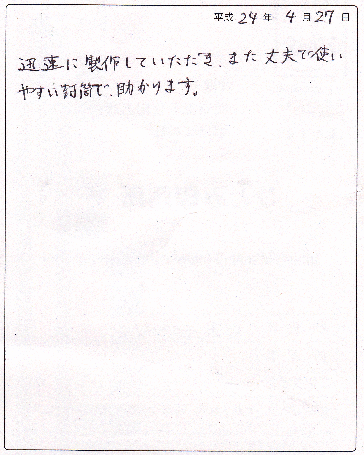 平成 24 年 4 月 27 日
迅速に製作していただき、また丈夫で使い
やすい封筒で、助かります。